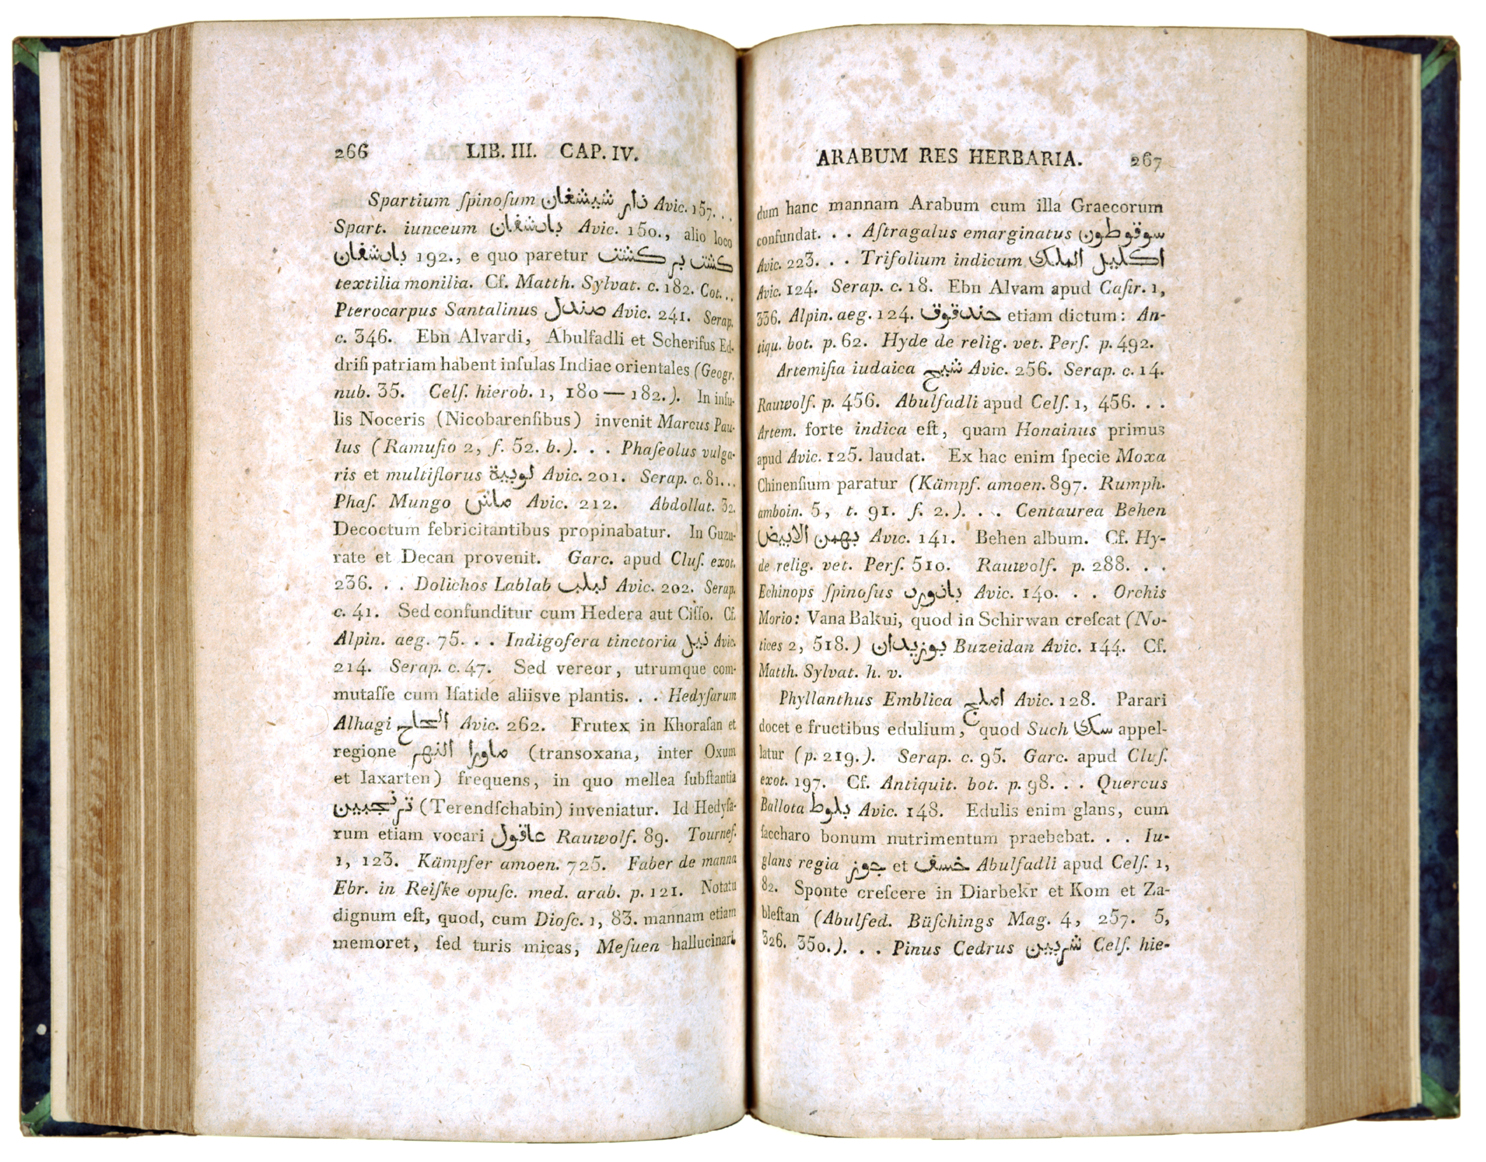 266 LIB. III. CAP. IV.
Spartium ſpinoſum دار شيشغان Avic. 157. . .
Spart. iunceum دارشيشغان Avic. 150., alio loco
192., e quo paretur كشت بر كشت
textilia monilia. Cf. Matth. Sylvat. c. 182. Cot. . .
Pterocarpus Santalinus صندل Avic. 241. Serap.
c. 346. Ebn Alvardi, Abulfadli et Scherifus Ed-
driſi patriam habent inſulas Indiae orientales (Geogr.
nub. 35. Celſ. hierob. 1, 180 — 182.). In inſu-
lis Noceris (Nicobarenſibus) invenit Marcus Pau-
lus (Ramuſio 2, f. 52. b.). . . Phaſeolus vulga-
ris et multiflorus لوبية Avic. 201. Serap. c. 81. . .
Phaſ. Mungo ماش Avic. 212. Abdollat. 32.
Decoctum febricitantibus propinabatur. In Guzu-
rate et Decan provenit. Garc. apud Cluſ. exot.
236. . . Dolichos Lablab لبلاب Avic. 202. Serap.
c. 41. Sed confunditur cum Hedera aut Ciſſo. Cf.
Alpin. aeg. 75. . . Indigofera tinctoria نيل Avic.
214. Serap. c. 47. Sed vereor, utrumque com-
mutaſſe cum Iſatide aliisve plantis. . . Hedyſarum
Alhagi الحاج Avic. 262. Frutex in Khoraſan et
regione ماورا النهر (transoxana, inter Oxum
et Iaxarten) frequens, in quo mellea ſubſtantia
ترنجبين (Terendſchabin) inveniatur. Id Hedyſa-
rum etiam vocari عاقول Rauwolf. 89. Tournef.
1, 123. Kämpfer amoen. 725. Faber de manna
Ebr. in Reiſke opuſc. med. arab. p. 121. Notatu
dignum eſt, quod, cum Dioſc. 1, 83. mannam etiam
memoret, ſed turis micas, Meſuen hallucinari,
ARABUM RES HERBARIA. 267
dum hanc mannam Arabum cum illa Graecorum
confundat. . . Aſtragalus emarginatus سوقوطون
Avic. 223. . . Trifolium indicum اكليل الملك
Avic. 124. Serap. c. 18. Ebn Alvam apud Caſir. 1,
336. Alpin. aeg. 124. حندقوق etiam dictum: An-
tiqu. bot. p. 62. Hyde de relig. vet. Perſ. p. 492.
Artemiſia iudaica شيح Avic. 256. Serap. c. 14.
Rauwolf. p. 456. Abulfadli apud Celſ. 1, 456. . .
Artem. forte indica eſt, quam Honainus primus
apud Avic. 125. laudat. Ex hac enim ſpecie Moxa
Chinenſium paratur (Kämpf. amoen. 897. Rumph.
amboin. 5, t. 91. f. 2.). . . Centaurea Behen
بهمن الابيض Avic. 141. Behen album. Cf. Hy-
de relig. vet. Perſ. 510. Rauwolf. p. 288. . .
Echinops ſpinoſus باذورد Avic. 140. . . Orchis
Morio: Vana Bakui, quod in Schirwan creſcat (No-
tices 2, 518.) بوزيدان Buzeidan Avic. 144. Cf.
Matth. Sylvat. h. v.
Phyllanthus Emblica املج Avic. 128. Parari
docet e fructibus edulium, quod Such سك appel-
latur (p. 219.). Serap. c. 95. Garc. apud Cluſ.
exot. 197. Cf. Antiquit. bot. p. 98. . . Quercus
Ballota بلوط Avic. 148. Edulis enim glans, cum
ſaccharo bonum nutrimentum praebebat. . . Iu-
glans regia جوز et خسف Abulfadli apud Celſ. 1,
82. Sponte creſcere in Diarbekr et Kom et Za-
bleſtan (Abulfed. Büſchings Mag. 4, 257. 5,
326. 350.). . . Pinus Cedrus شربين Celſ. hie-